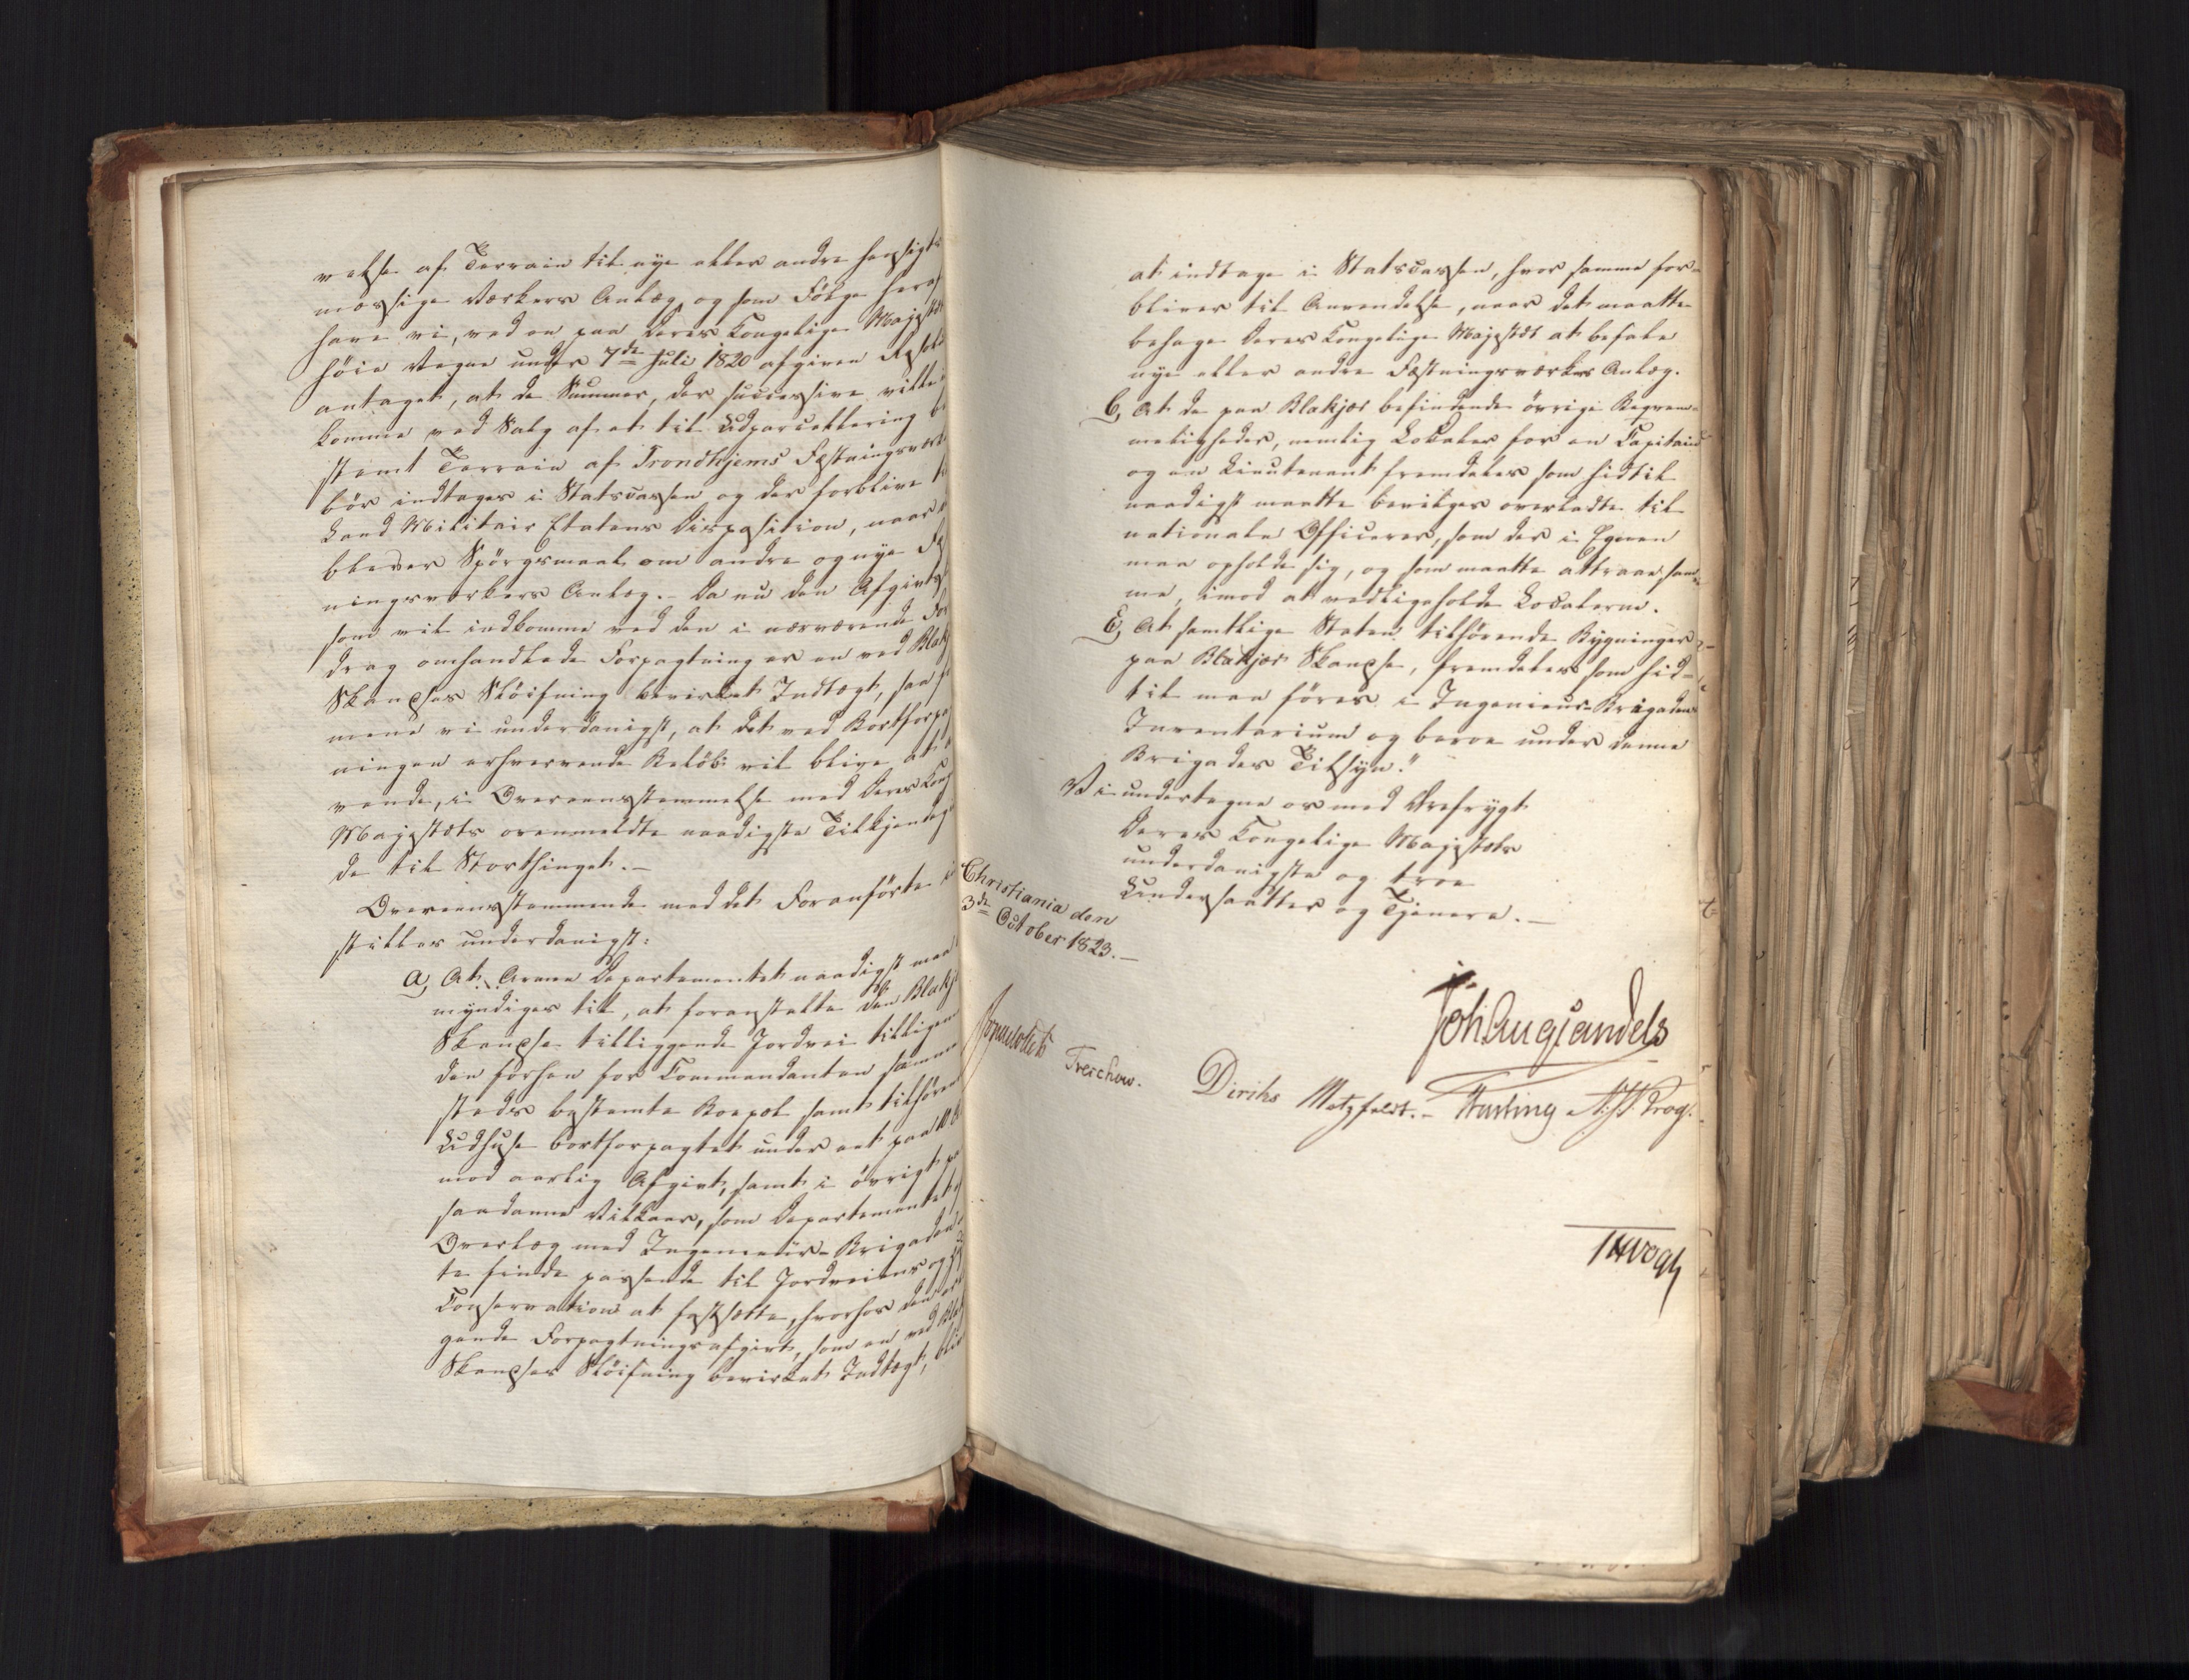 velse af Terrain til nye eller andre hensigts
mæssige Værkers Anlæg, og som Følge heraf
have vi, ved en paa Deres Kongelige Majestæts
høie Vegne under 7de Juli 1820 afgiven Resol
antaget, at de Summer, der successive ville
komme ved Salg af et til Udparcellering be
stemt Terrain af Trondhjems Fæstningsværker
bør indtages i Statscassen og der forblive til
Land Militair Etatens Disposition, naar
bliver Spørgsmaal om andre og nye Fæst
ningsværkers Anlæg. - Da nu den Afgivt,
som vil indkomme ved den i nærværende Fore
drag omhandlede Forpagtning er en ved Blakjer
Skandses Sløifning bevirket Indtægt, saa for
mene vi underdanigst, at det ved Bortforpagt
ningen erhvervende Beløb vil blive, at
vende, i Overeensstemmelse med Deres Kong
Majestæts ovenmeldte naadigste Tilkjendegi
de til Storthinget. -
Overeensstemmende med det Foranførte ind
stilles underdanigst:
a, At Armee Departementet naadigst maa be
myndiges til, at foranstalte den Blakjer
Skandse tilliggende Jordvei tilligemed
den forhen for Commandanten samme
steds bestemte Boepæl samt tilhørende
Udhuse bortforpagtet under eet paa
mod aarlig Afgivt, samt i øvrigt paa
saadanne Vilkaar, som Departementet ef
Overlæg med Ingenieur-Brigaden
te finde passende til Jordveiens og
Conservation at fastsætte, hvorhos den
gende Forpagtningsafgivt, som en ved Blakjer
Skandses Sløifning bevirket Indtægt, bliver
at indtage i Statscassen, hvor samme for-
bliver til Anvendelse, naar det maatte
behage Deres Kongelige Majestæt at befale
nye eller andre Fæstningsværkers Anlæg.
b, At de paa Blakjer befindende øvrige Beqvem-
meligheder, nemlig Localer for en Capitain
og en Lieutenant fremdeles som hidtil
naadigst maatte bevilges overladte til
nationale Officerer, som der i Egnen
maa opholde sig, og som maatte attraae sam-
me, imod at vedligeholde Localerne.
c, At samtlige Staten tilhørende Bygninger
paa Blakjer Skandse, fremdeles som hid-
til maa føres i Ingenieur-Brigadens
Inventarium og beroe under denne
Brigades Tilsyn."
Vi undertegne os med Ærefrygt
Deres Kongelige Majestæts
underdanigste og troe
Undersaatter og Tjenere. -
Christiania den
3de October 1823. -
Joh Aug Sandels
Sommerhielm
Treschow.
Diriks Motzfeldt. - Fasting A: H. Krog.
JHVogt